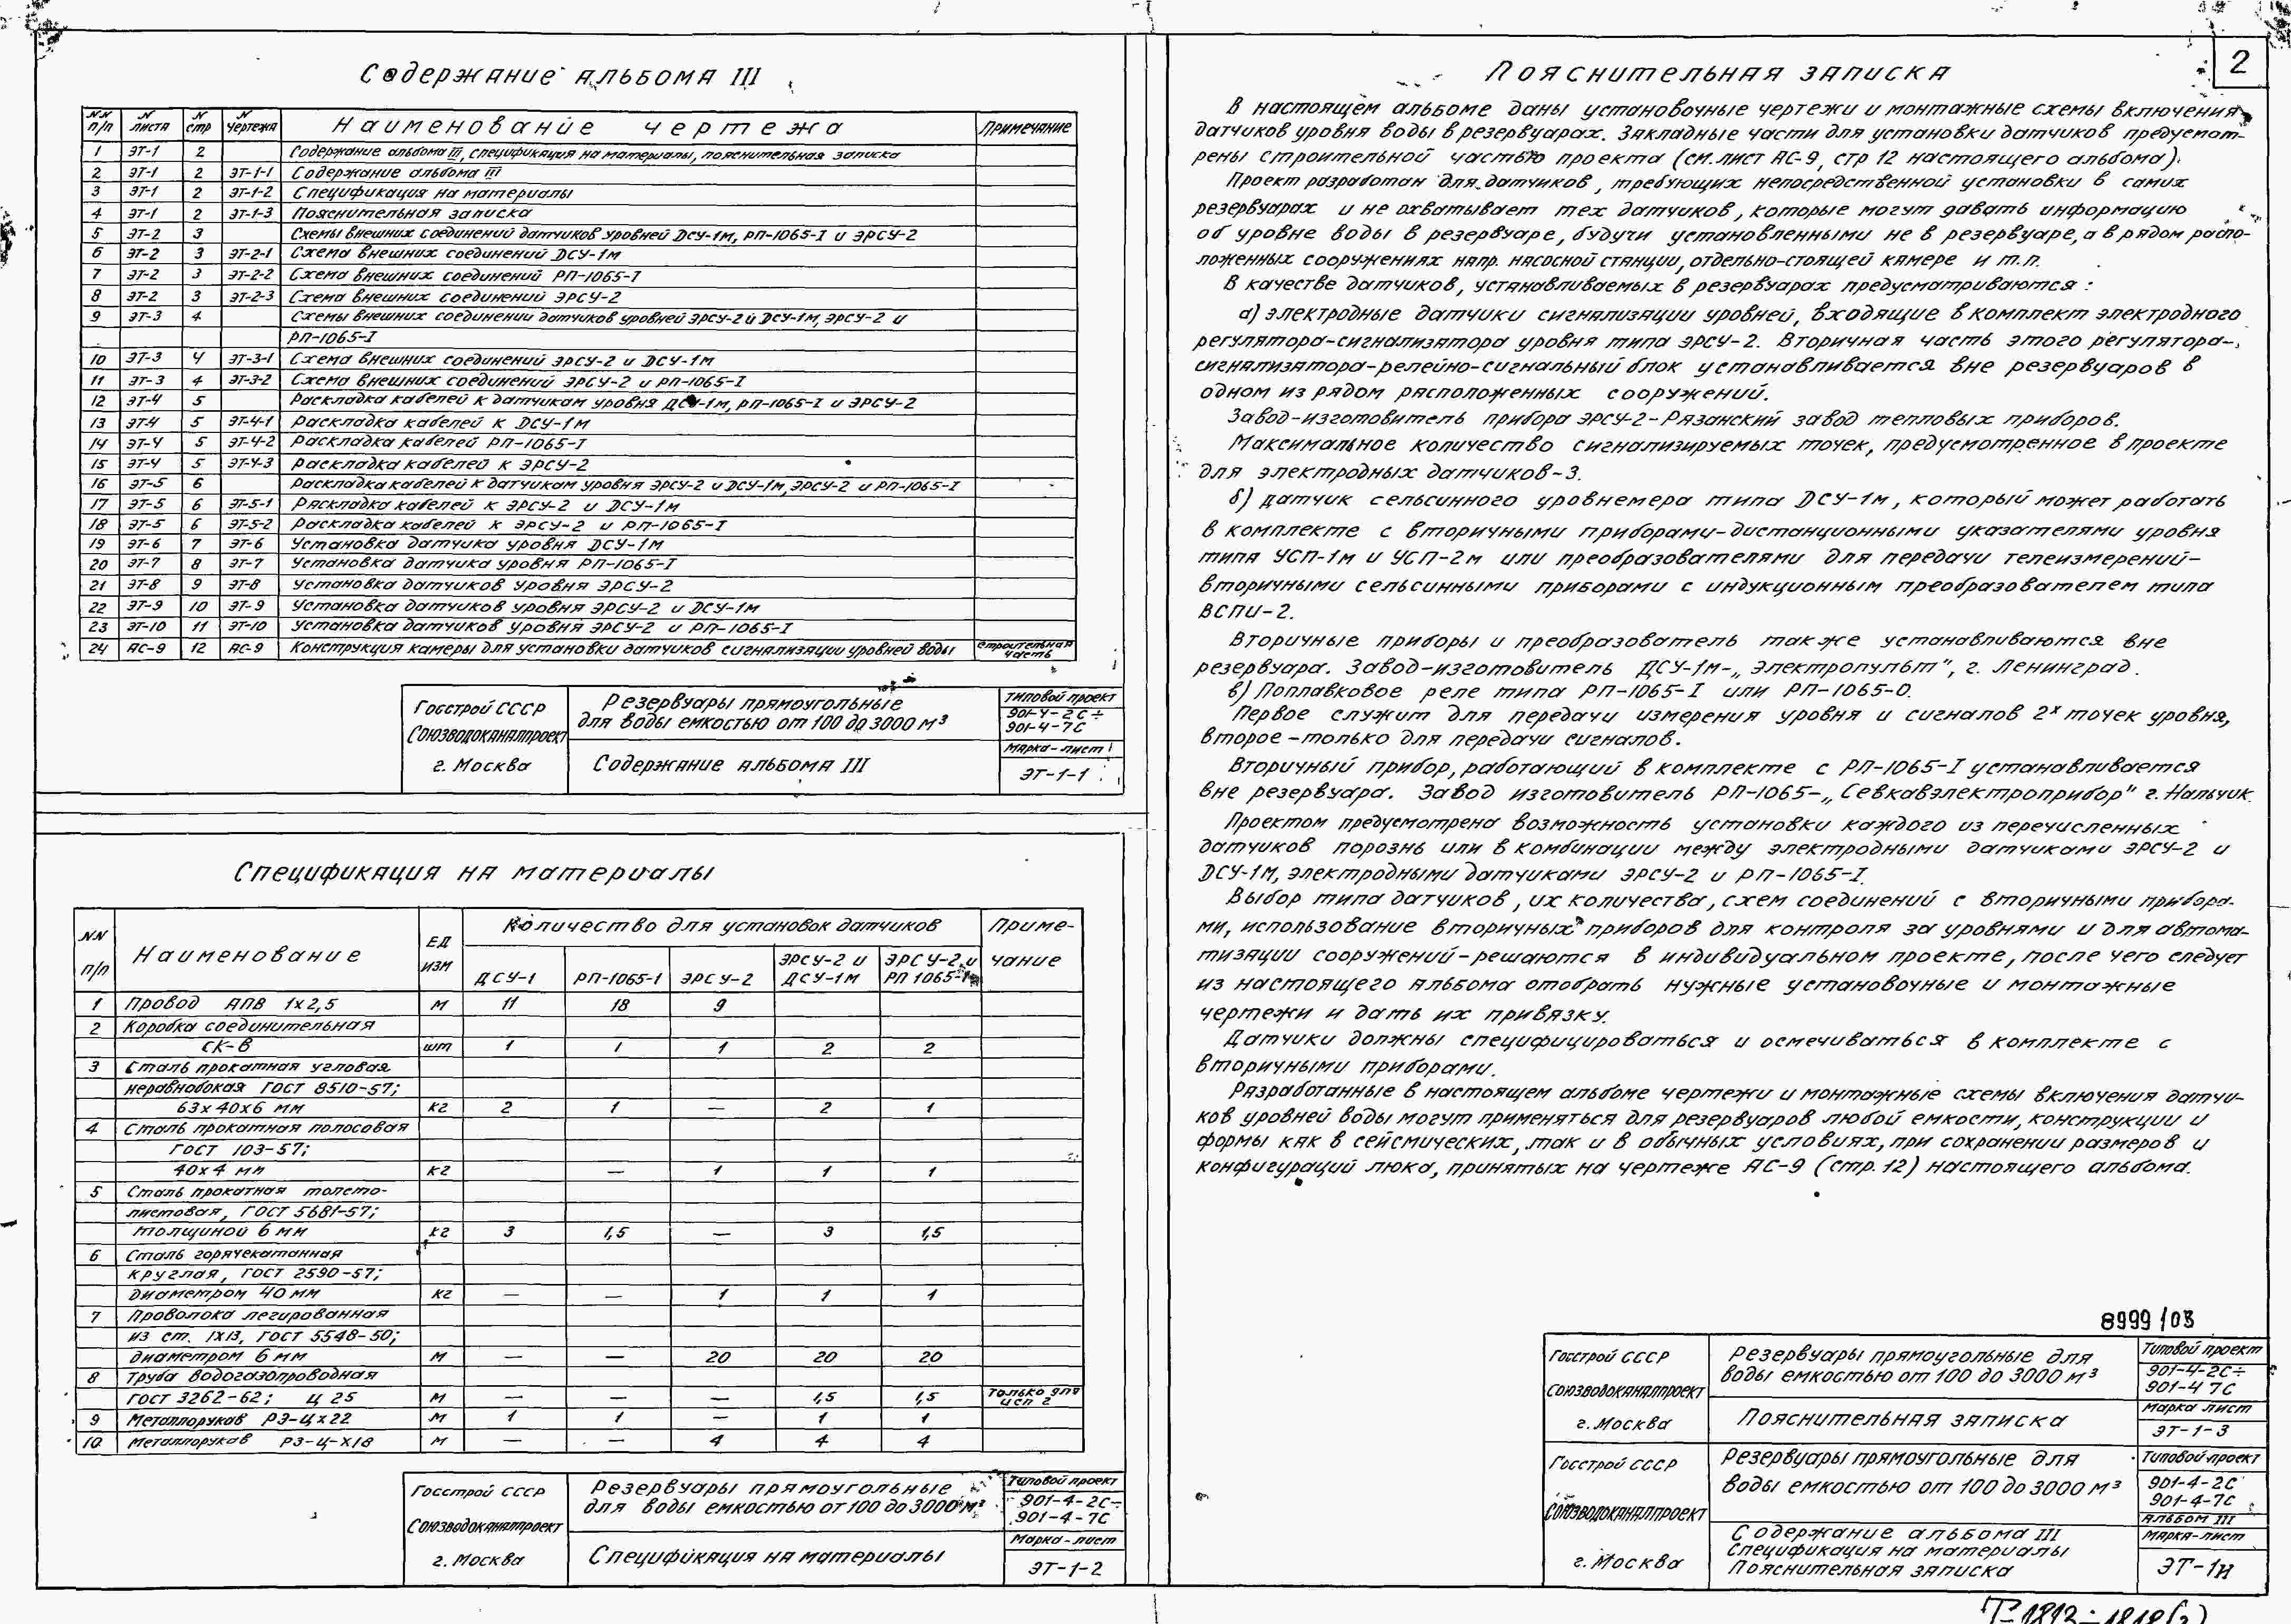 2
Содержание альбома III
NN п/п | N листа | N стр | N чертежа | Наименование чертежа | Примечание
1 | ЭТ-1 | 2 | | Содержание альбома III, спецификация на материалы, пояснительная записка
2 | ЭТ-1 | 2 | ЭТ-1-1 | Содержание альбома III
3 | ЭТ-1 | 2 | ЭТ-1-2 | Спецификация на материалы
4 | ЭТ-1 | 2 | ЭТ-1-3 | Пояснительная записка
5 | ЭТ-2 | 3 | | Схемы внешних соединений датчиков уровней ДСУ-1м, РП-1065-I и ЭРСУ-2
6 | ЭТ-2 | 3 | ЭТ-2-1 | Схема внешних соединений ДСУ-1м
7 | ЭТ-2 | 3 | ЭТ-2-2 | Схема внешних соединений РП-1065-I
8 | ЭТ-2 | 3 | ЭТ-2-3 | Схема внешних соединений ЭРСУ-2
9 | ЭТ-3 | 4 | | Схемы внешних соединении датчиков уровней ЭРСУ-2 и ДСУ-1м, ЭРСУ-2 и
РП-1065-I
10 | ЭТ-3 | 4 | ЭТ-3-1 | Схема внешних соединений ЭРСУ-2 и ДСУ-1м
11 | ЭТ-3 | 4 | ЭТ-3-2 | Схема внешних соединений ЭРСУ-2 и РП-1065-I
12 | ЭТ-4 | 5 | | Раскладка кабелей к датчикам уровня ДСУ-1м, РП-1065-I и ЭРСУ-2
13 | ЭТ-4 | 5 | ЭТ-4-1 | Раскладка кабелей к ДСУ-1м
14 | ЭТ-4 | 5 | ЭТ-4-2 | Раскладка кабелей РП-1065-I
15 | ЭТ-4 | 5 | ЭТ-4-3 | Раскладка кабелей к ЭРСУ-2
16 | ЭТ-5 | 6 | | Раскладка кабелей к датчикам уровня ЭРСУ-2 и ДСУ-1м, ЭРСУ-2 и РП-1065-I
17 | ЭТ-5 | 6 | ЭТ-5-1 | Раскладка кабелей к ЭРСУ-2 и ДСУ-1м
18 | ЭТ-5 | 6 | ЭТ-5-2 | Раскладка кабелей к ЭРСУ-2 и РП-1065-I
19 | ЭТ-6 | 7 | ЭТ-6 | Установка датчика уровня ДСУ-1м
20 | ЭТ-7 | 8 | ЭТ-7 | Установка датчика уровня РП-1065-I
21 | ЭТ-8 | 9 | ЭТ-8 | Установка датчиков уровня ЭРСУ-2
22 | ЭТ-9 | 10 | ЭТ-9 | Установка датчиков уровня ЭРСУ-2 и ДСУ-1м
23 | ЭТ-10 | 11 | ЭТ-10 | Установка датчиков уровня ЭРСУ-2 и РП-1065-I
24 | АС-9 | 12 | АС-9 | Конструкция камеры для установки датчиков сигнализации уровней воды | Строительная часть
Госстрой СССР
Союзводоканалпроект
г. Москва
Резервуары прямоугольные
для воды емкостью от 100 до 3000 м³
Содержание альбома III
типовой проект
901-4-2С÷
901-4-7С
Марка-лист
ЭТ-1-1
Спецификация на материалы
NN п/п | Наименование | ЕД ИЗМ | Количество для установок датчиков | Приме-чание
ДСУ-1 | РП-1065-1 | ЭРСУ-2 | ЭРСУ-2 и ДСУ-1М | ЭРСУ-2 и РП 1065-1
1 | Провод АПВ 1х2,5 | м | 11 | 18 | 9
2 | Коробка соединительная
СК-8 | шт | 1 | 1 | 1 | 2 | 2
3 | Сталь прокатная угловая
неравнобокая ГОСТ 8510-57;
63х40х6 мм | кг | 2 | 1 | — | 2 | 1
4 | Сталь прокатная полосовая
ГОСТ 103-57;
40х4 мм | кг | | — | 1 | 1 | 1
5 | Сталь прокатная толсто-
листовая, ГОСТ 5681-57;
толщиной 6 мм | кг | 3 | 1,5 | — | 3 | 1,5
6 | Сталь горячекатанная
круглая, ГОСТ 2590-57;
диаметром 40 мм | кг | — | — | 1 | 1 | 1
7 | Проволока легированная
из ст. 1Х13, ГОСТ 5548-50;
диаметром 6 мм | м | — | — | 20 | 20 | 20
8 | Труба водогазопроводная
ГОСТ 3262-62; Ц 25 | м | — | — | — | 1,5 | 1,5 | Только для исп 2
9 | Металлорукав РЗ-Цх22 | м | 1 | 1 | — | 1 | 1
10 | Металлорукав РЗ-Ц-Х18 | м | — | — | 4 | 4 | 4
Госстрой СССР
Союзводоканалпроект
г. Москва
Резервуары прямоугольные
для воды емкостью от 100 до 3000 м³
Спецификация на материалы
Типовой проект
901-4-2С÷
901-4-7С
Марка-лист
ЭТ-1-2
Пояснительная записка
В настоящем альбоме даны установочные чертежи и монтажные схемы включения
датчиков уровня воды в резервуарах. Закладные части для установки датчиков предусмот-
рены строительной частью проекта (см. лист АС-9, стр 12 настоящего альбома).
Проект разработан для датчиков, требующих непосредственной установки в самих
резервуарах и не охватывает тех датчиков, которые могут давать информацию
об уровне воды в резервуаре, будучи установленными не в резервуаре, а в рядом распо-
ложенных сооружениях напр. насосной станции, отдельно-стоящей камере и т.п.
В качестве датчиков, устанавливаемых в резервуарах предусматриваются:
а) электродные датчики сигнализации уровней, входящие в комплект электродного
регулятора-сигнализатора уровня типа ЭРСУ-2. Вторичная часть этого регулятора-
сигнализатора-релейно-сигнальный блок устанавливается вне резервуаров в
одном из рядом расположенных сооружений.
Завод-изготовитель прибора ЭРСУ-2-Рязанский завод тепловых приборов.
Максимальное количество сигнализируемых точек, предусмотренное в проекте
для электродных датчиков-3.
б) датчик сельсинного уровнемера типа ДСУ-1м, который может работать
в комплекте с вторичными приборами-дистанционными указателями уровня
типа УСП-1м и УСП-2м или преобразователями для передачи телеизмерений-
вторичными сельсинными приборами с индукционным преобразователем типа
ВСПИ-2.
Вторичные приборы и преобразователь также устанавливаются вне
резервуара. Завод-изготовитель ДСУ-1м-„Электропульт", г. Ленинград.
в) Поплавковое реле типа РП-1065-I или РП-1065-0.
Первое служит для передачи измерения уровня и сигналов 2х точек уровня,
второе-только для передачи сигналов.
Вторичный прибор, работающий в комплекте с РП-1065-I устанавливается
вне резервуара. Завод изготовитель РП-1065-„Севкавэлектроприбор" г. Нальчик.
Проектом предусмотрена возможность установки каждого из перечисленных
датчиков порознь или в комбинации между электродными датчиками ЭРСУ-2 и
ДСУ-1М, электродными датчиками ЭРСУ-2 и РП-1065-I.
Выбор типа датчиков, их количества, схем соединений с вторичными прибора-
ми, использование вторичных приборов для контроля за уровнями и для автома-
тизации сооружений-решаются в индивидуальном проекте, после чего следует
из настоящего альбома отобрать нужные установочные и монтажные
чертежи и дать их привязку.
Датчики должны специфицироваться и осмечиваться в комплекте с
вторичными приборами.
Разработанные в настоящем альбоме чертежи и монтажные схемы включения датчи-
ков уровней воды могут применяться для резервуаров любой емкости, конструкции и
формы как в сейсмических, так и в обычных условиях, при сохранении размеров и
конфигураций люка, принятых на чертеже АС-9 (стр. 12) настоящего альбома.
8999/03
Госстрой СССР
Союзводоканалпроект
г. Москва
Резервуары прямоугольные для
воды емкостью от 100 до 3000 м³
Пояснительная записка
Типовой проект
901-4-2С÷
901-4 7С
Марка лист
ЭТ-1-3
Госстрой СССР
Союзводоканалпроект
г. Москва
Резервуары прямоугольные для
воды емкостью от 100 до 3000 м³
Содержание альбома III
Спецификация на материалы
Пояснительная записка
Типовой проект
901-4-2С
901-4-7С
Альбом III
Марка-лист
ЭТ-1н
Т-1813-1818(3)